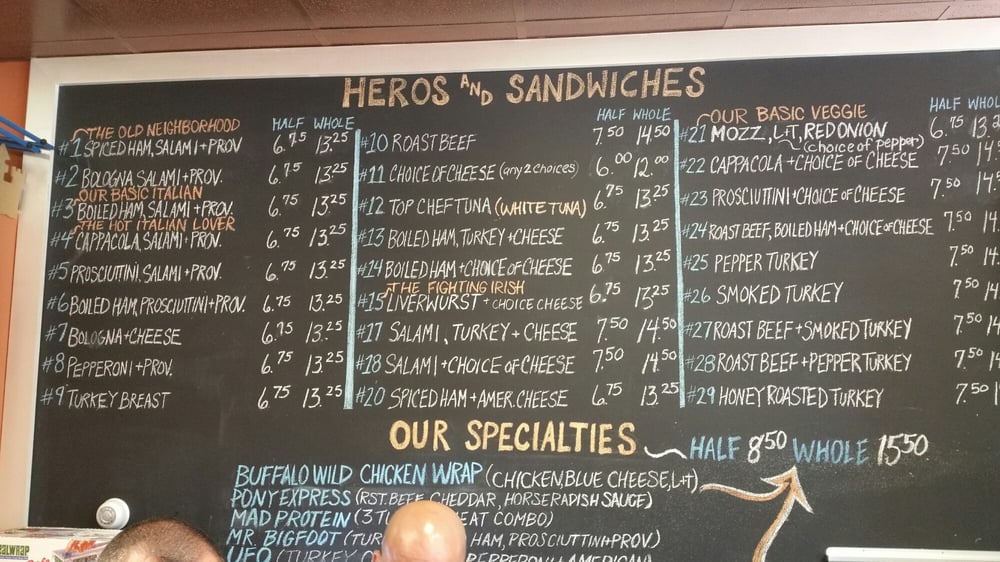 HEROS AND SANDWICHES
HALF WHOLE
THE OLD NEIGHBORHOOD
#1 SPICED HAM, SALAMI + PROV 6.75 13.25
#2 BOLOGNA, SALAMI + PROV. 6.75 13.25
OUR BASIC ITALIAN
#3 BOILED HAM, SALAMI + PROV. 6.75 13.25
THE HOT ITALIAN LOVER
#4 CAPPACOLA, SALAMI + PROV. 6.75 13.25
#5 PROSCIUTTINI, SALAMI + PROV. 6.75 13.25
#6 BOILED HAM, PROSCIUTTINI + PROV. 6.75 13.25
#7 BOLOGNA + CHEESE 6.75 13.25
#8 PEPPERONI + PROV. 6.75 13.25
#9 TURKEY BREAST 6.75 13.25
HALF WHOLE
#10 ROAST BEEF 7.50 14.50
#11 CHOICE OF CHEESE (any 2 choices) 6.00 12.00
#12 TOP CHEF TUNA (WHITE TUNA) 6.75 13.25
#13 BOILED HAM, TURKEY + CHEESE 6.75 13.25
#14 BOILED HAM + CHOICE OF CHEESE 6.75 13.25
THE FIGHTING IRISH
#15 LIVERWURST + CHOICE CHEESE 6.75 13.25
#17 SALAMI, TURKEY + CHEESE 7.50 14.50
#18 SALAMI + CHOICE OF CHEESE 7.50 14.50
#20 SPICED HAM + AMER. CHEESE 6.75 13.25
HALF WHOL
OUR BASIC VEGGIE
#21 MOZZ., L+T, RED ONION 6.75 13.2
(choice of pepper)
#22 CAPPACOLA + CHOICE OF CHEESE 7.50 14.
#23 PROSCIUTTINI + CHOICE OF CHEESE 7.50 14.
#24 ROAST BEEF, BOILED HAM + CHOICE OF CHEESE 7.50 14.
#25 PEPPER TURKEY 7.50 14.
#26 SMOKED TURKEY 7.50 14
#27 ROAST BEEF + SMOKED TURKEY 7.50 14
#28 ROAST BEEF + PEPPER TURKEY 7.50 14
#29 HONEY ROASTED TURKEY 7.50 1
OUR SPECIALTIES HALF 8.50 WHOLE 15.50
BUFFALO WILD CHICKEN WRAP (CHICKEN, BLUE CHEESE, L+T)
PONY EXPRESS (RST BEEF CHEDDAR, HORSERADISH SAUCE)
MAD PROTEIN (3 TU EAT COMBO)
MR. BIGFOOT (TUR HAM, PROSCIUTTINI + PROV)
UFO (TURKEY C PEPPERONI + AMERICAN)
EALWRAP